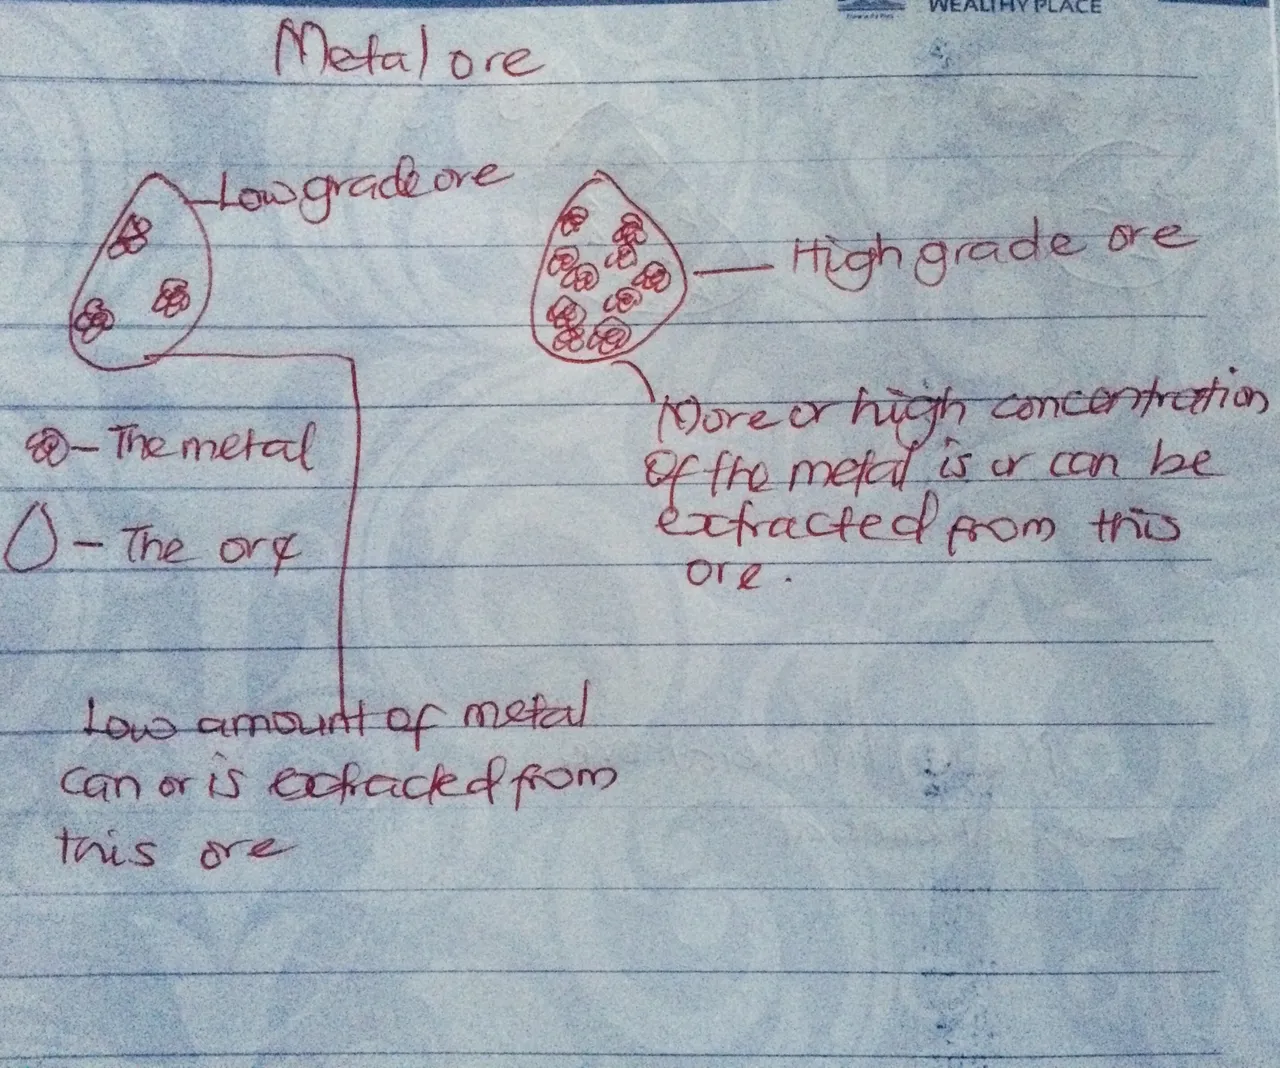 WEALTHY PLACE
Metal ore
Low grade ore
High grade ore
More or high concentration
Of the metal is or can be
extracted from this
ore.
- The metal
- The ore
Low amount of metal
can or is extracted from
this ore